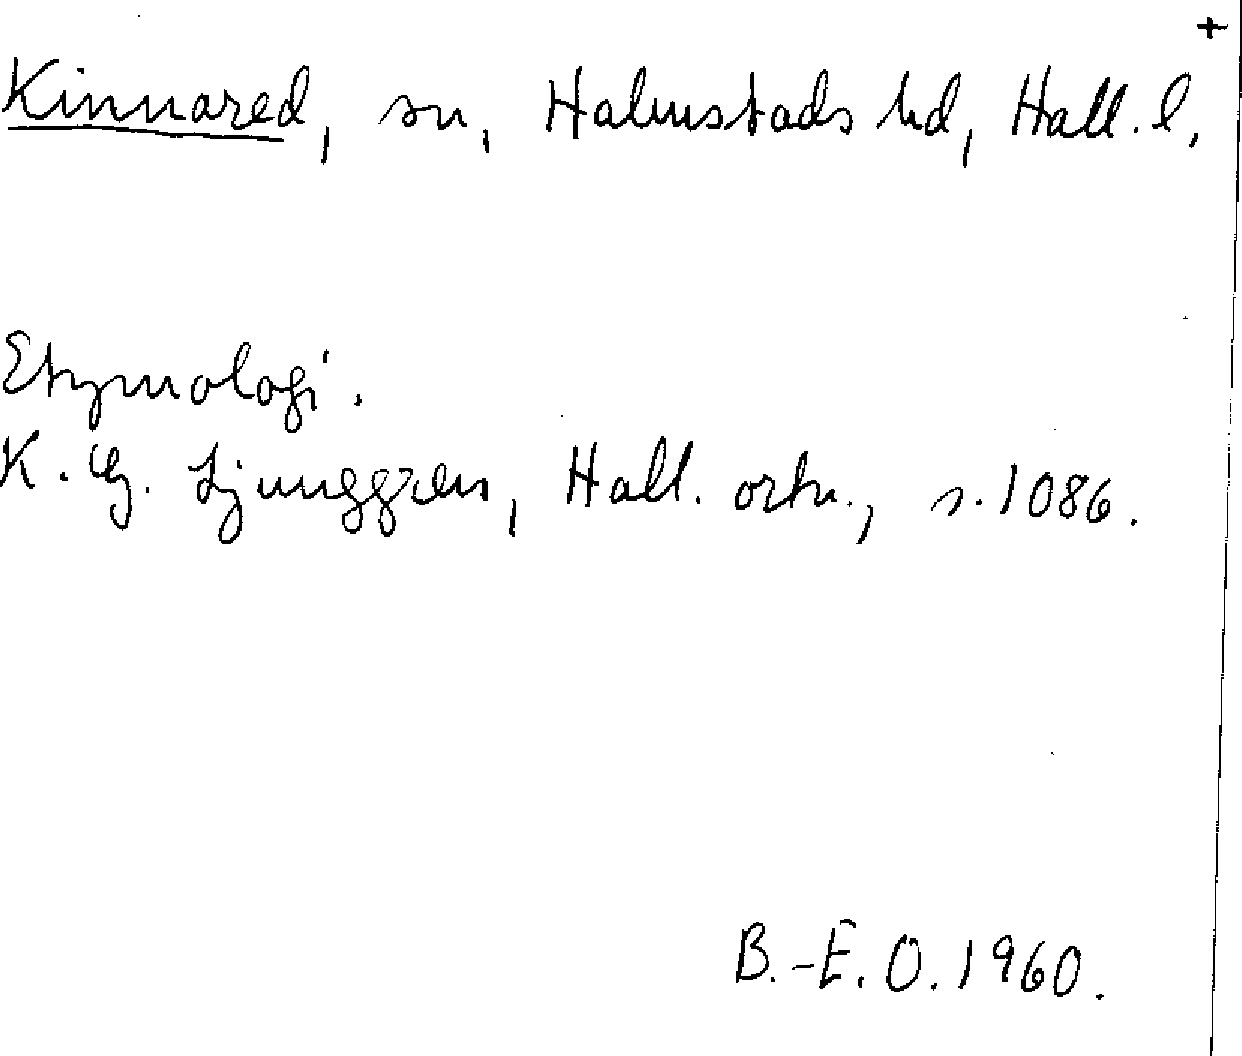 +
Kinnared, sn, Halmstads hd, Hall. l.
Etymologi.
K. G. Ljunggren, Hall. ortn., s. 1086.
B.-E. O. 1960.